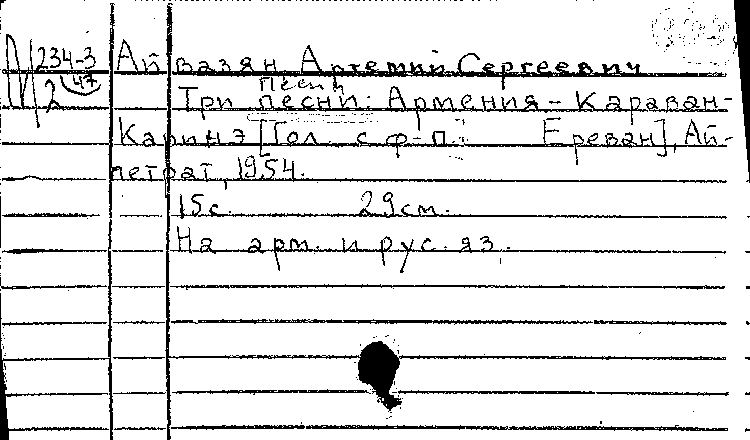 М 234-3 Айвазян Артемий Сергеевич
2 47 Песни
Три песни: Армения - Караван-
Каринэ [Гол. с ф-п. Ереван], Ай-
петрат, 1954.
15с. 29см.
На арм. и рус. яз.